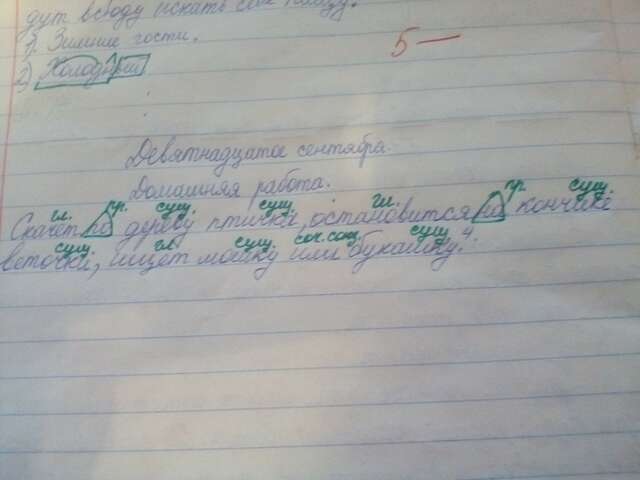 дут всюду искать себе пищу.
1) Зимние гости.
5 —
2) Холодный
Девятнадцатое сентября.
Домашняя работа.
гл. пр. сущ. сущ гл. пр. сущ.
Скачет по дереву птичка, остановится на кончике
сущ. гл сущ. соч. союз. сущ. 4
веточки, ищет мошку или букашку.